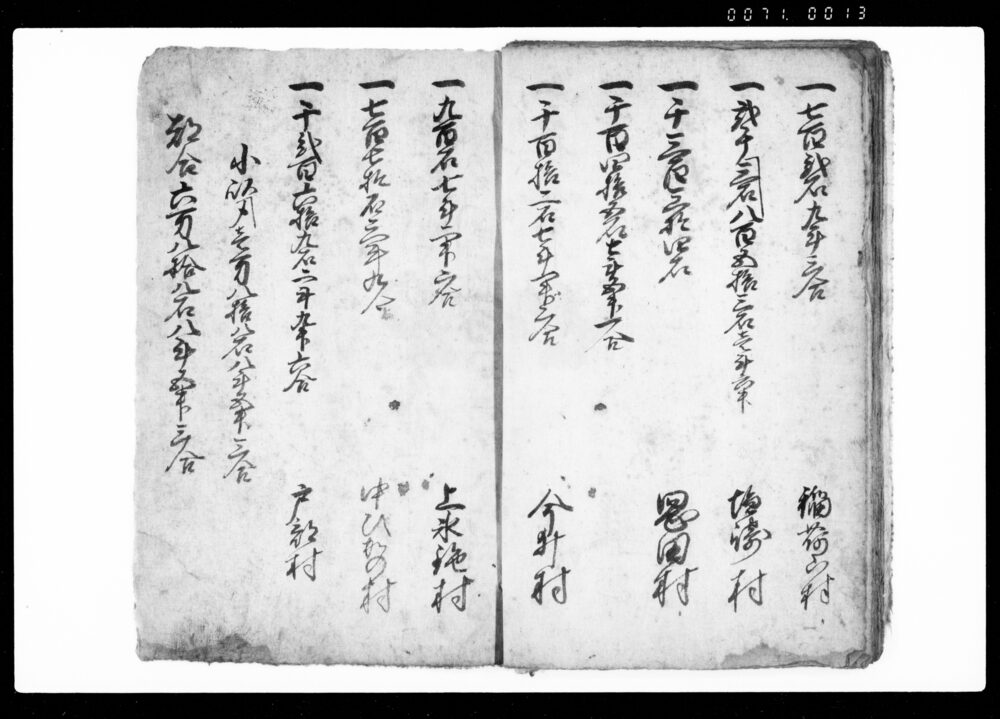 0071. 0013
一七百弐石九斗三合
稲荷山村
一弐千三百八百五拾三石壱斗六升
塩崎村
一千三百三拾四石
岡田村
一千百四拾五石七斗五升一合
一千百拾二石七斗
今井村
一九百石七斗一升六合
上氷鉋村
一七百七拾石二斗九合
中ひかの村
一千弐百六拾九石二斗九升六合
戸部村
小以壱万八拾八石八斗五升三合
都合六万八拾八石八斗五升三合